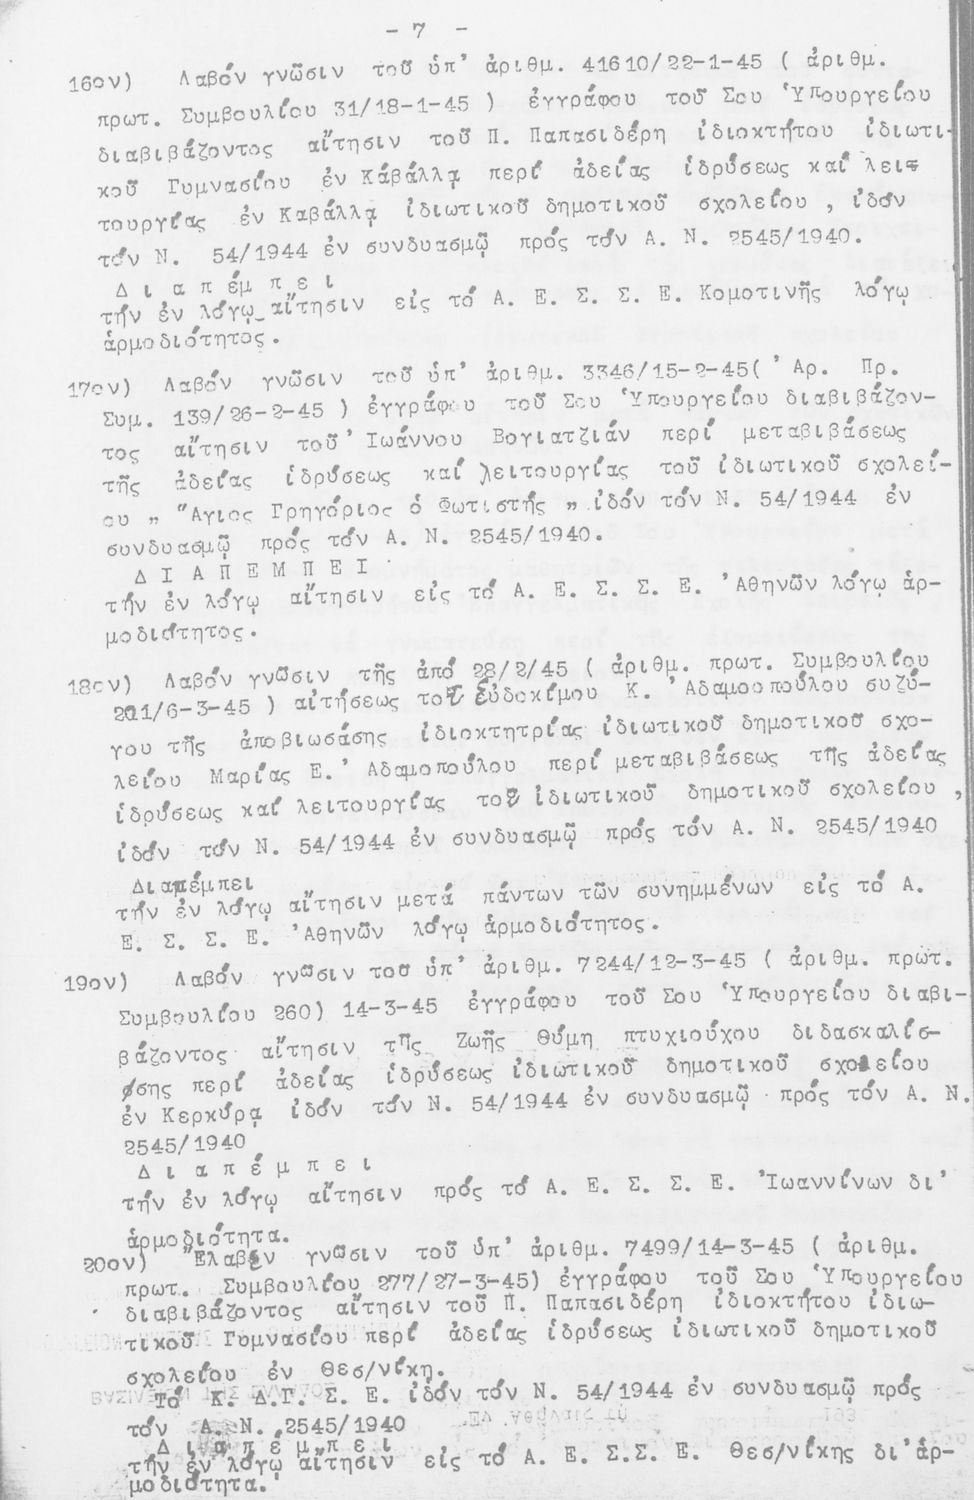 - 7 -
16ον) Λαβόν γνῶσιν τοῦ ὑπ' ἀριθμ. 41610/22-1-45 ( ἀριθμ.
πρωτ. Συμβουλίου 31/18-1-45 ) ἐγγράφου τοῦ Σου Ὑπουργείου
διαβιβάζοντος αἴτησιν τοῦ Π. Παπασιδέρη ἰδιοκτήτου ἰδιωτι-
κοῦ Γυμνασίου ἐν Κάβάλλᾳ περί ἀδείας ἱδρύσεως καί λει-
τουργίας ἐν Καβάλλᾳ ἰδιωτικοῦ δημοτικοῦ σχολείου , ἰδόν
τόν Ν. 54/1944 ἐν συνδυασμῷ πρός τόν Α. Ν. 2545/1940.
Δ ι α π έ μ π ε ι
τήν ἐν λόγῳ αἴτησιν εἰς τό Α. Ε. Σ. Σ. Ε. Κομοτινῆς λόγῳ
ἁρμοδιότητος.
17ον) Λαβόν γνῶσιν τοῦ ὑπ' ἀριθμ. 3346/15-2-45( 'Αρ. Πρ.
Συμ. 139/26-2-45 ) ἐγγράφου τοῦ Σου Ὑπουργείου διαβιβάζον-
τος αἴτησιν τοῦ 'Ιωάννου Βογιατζιάν περί μεταβιβάσεως
τῆς ἀδείας ἱδρύσεως καί λειτουργίας τοῦ ἰδιωτικοῦ σχολεί-
ου „ "Αγιος Γρηγόριος ὁ Φωτιστής „ ἰδόν τόν Ν. 54/1944 ἐν
συνδυασμῷ πρός τόν Α. Ν. 2545/1940.
Δ Ι Α Π Ε Μ Π Ε Ι
τήν ἐν λόγῳ αἴτησιν εἰς τό Α. Ε. Σ. Σ. Ε. 'Αθηνῶν λόγῳ ἁρ-
μοδιότητος.
18ον) Λαβόν γνῶσιν τῆς ἀπό 28/2/45 ( ἀριθμ. πρωτ. Συμβουλίου
201/6-3-45 ) αἰτήσεως τοῦ Εὐδοκίμου Κ. 'Αδαμοοπούλου συζύ-
γου τῆς ἀποβιωσάσης ἰδιοκτητρίας ἰδιωτικοῦ δημοτικοῦ σχο-
λείου Μαρίας Ε.' Αδαμοπούλου περί μεταβιβάσεως τῆς ἀδείας
ἱδρύσεως καί λειτουργίας τοῦ ἰδιωτικοῦ δημοτικοῦ σχολείου ,
ἰδόν τόν Ν. 54/1944 ἐν συνδυασμῷ πρός τόν Α. Ν. 2545/1940
Διαπέμπει
τήν ἐν λόγῳ αἴτησιν μετά πάντων τῶν συνημμένων εἰς τό Α.
Ε. Σ. Σ. Ε. 'Αθηνῶν λόγῳ ἁρμοδιότητος.
19ον) Λαβόν γνῶσιν τοῦ ὑπ' ἀριθμ. 7244/12-3-45 ( ἀριθμ. πρωτ.
Συμβουλίου 260) 14-3-45 ἐγγράφου τοῦ Σου Ὑπουργείου διαβι-
βάζοντος αἴτησιν τῆς Ζωῆς Θύμη πτυχιούχου διδασκαλίσ-
σης περί ἀδείας ἱδρύσεως ἰδιωτικοῦ δημοτικοῦ σχολείου
ἐν Κερκύρᾳ ἰδόν τόν Ν. 54/1944 ἐν συνδυασμῷ πρός τόν Α. Ν.
2545/1940
Δ ι α π έ μ π ε ι
τήν ἐν λόγῳ αἴτησιν πρός τό Α. Ε. Σ. Σ. Ε. 'Ιωαννίνων δι'
ἁρμοδιότητα.
20ον) "Ελαβεν γνῶσιν τοῦ ὑπ' ἀριθμ. 7499/14-3-45 ( ἀριθμ.
πρωτ. Συμβουλίου 277/27-3-45) ἐγγράφου τοῦ Σου Ὑπουργείου
διαβιβάζοντος αἴτησιν τοῦ Π. Παπασιδέρη ἰδιοκτήτου ἰδιω-
τικοῦ Γυμνασίου περί ἀδείας ἱδρύσεως ἰδιωτικοῦ δημοτικοῦ
σχολείου ἐν Θεσ/νίκη.
Τό Κ. Δ.Γ. Σ. Ε. ἰδόν τόν Ν. 54/1944 ἐν συνδυασμῷ πρός
τόν Α. Ν. 2545/1940
Δ ι α π έ μ π ε ι
τήν ἐν λόγῳ αἴτησιν εἰς τό Α. Ε. Σ.Σ. Ε. Θεσ/νίκης δι'ἁρ-
μοδιότητα.